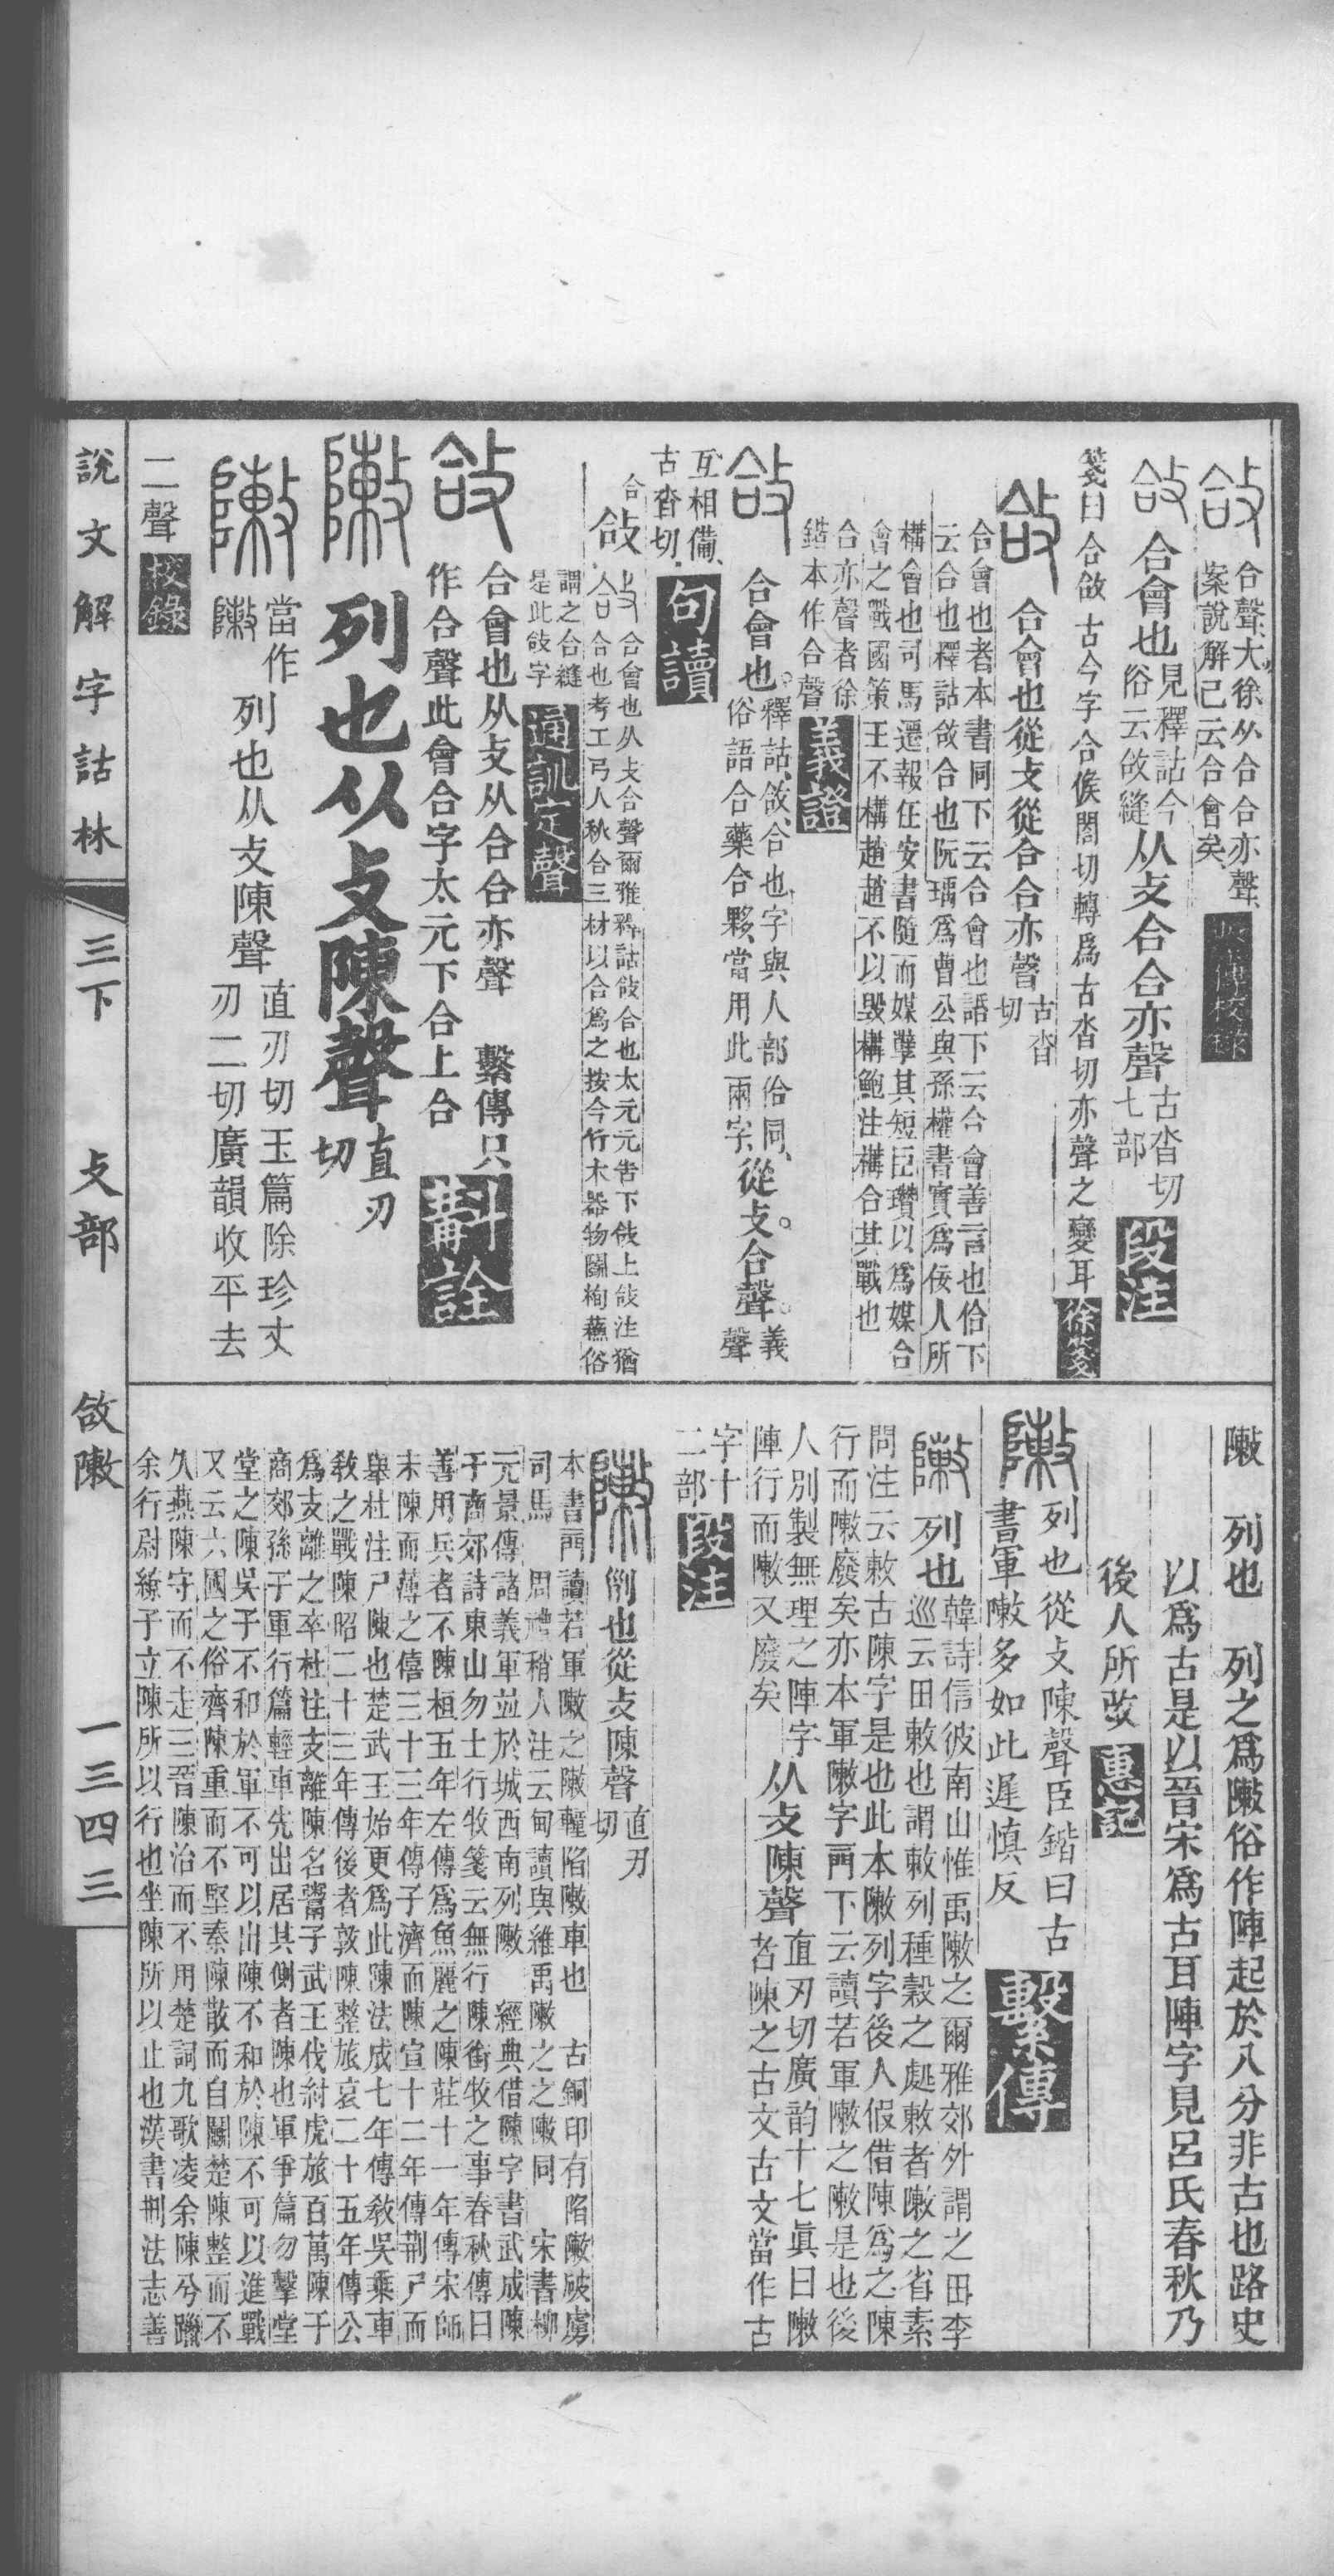 敆 合聲、大徐从合合亦聲、
案說解已云合會矣 繫傳校錄
敆 合會也 見釋詁今
俗云敆縫 从攴合合亦聲 古沓切
七部 段注
箋曰合敆古今字合侯閤切轉爲古沓切亦聲之變耳 徐箋
敆 合會也從攴從合合亦聲 古沓
切
合會也者本書同下云合會也話下云合會善言也佮下
云合也釋詁敆合也阮瑀爲曹公與孫權書實爲佞人所
構會也司馬遷報任安書隨而媒孽其短臣瓚以爲媒合
會之戰國策王不構趙趙不以毀構鮑注構合其戰也
合亦聲者徐
鍇本作合聲 義證
敆 合會也。 釋詁、敆、合也、字與人部佮同、
俗語合藥合夥、當用此兩字、 從攴。合聲。 義
聲
互相備、
古沓切、 句讀
敆 合會也从攴合聲爾雅釋詁敆合也太元元告下敆上敆注猶
合也考工弓人秋合三材以合爲之按今行木器物鬭栒蘸俗
謂之合縫
是此敆字 通訓定聲
敆 合會也从攴从合合亦聲 繫傳只
作合聲此會合字太元下合上合 斠詮
敶 列也从攴陳聲 直刃
切
敶 當作
敶 列也从攴陳聲 直刃切玉篇除珍丈
刃二切廣韻收平去
二聲 校錄
說文解字詁林 三下 攴部 敆敶 一三四三
敶 列也 列之爲敶俗作陣起於八分非古也路史
以爲古是以晉宋爲古耳陣字見呂氏春秋乃
後人所改 惠記
敶 列也從攴陳聲臣鍇曰古
書軍敶多如此遲慎反 繫傳
敶 列也 韓詩信彼南山惟禹敶之爾雅郊外謂之田李
巡云田敕也謂敕列種穀之處敕者敶之省素
問注云敕古陳字是也此本敶列字後人假借陳爲之陳
行而敶廢矣亦本軍敶字𨳌下云讀若軍敶之敶是也後
人別製無理之陣字
陣行而敶又廢矣 从攴陳聲 直刃切廣韵十七眞曰敶
者陳之古文古文當作古
字十
二部 段注
敶 列也從攴陳聲 直刃
切
本書𨳌讀若軍敶之敶轒陷敶車也 古銅印有陷敶破虜
司馬 周禮稍人注云甸讀與維禹敶之之敶同 宋書柳
元景傳諸義軍並於城西南列敶 經典借陳字書武成陳
于商郊詩東山勿士行牧箋云無行陳衘牧之事春秋傳曰
善用兵者不陳桓五年左傳爲魚麗之陳莊十一年傳宋師
未陳而薄之僖三十三年傳子濟而陳宣十二年傳荆尸而
舉杜注尸陳也楚武王始更爲此陳法成七年傳敎吳乘車
敎之戰陳昭二十三年傳後者敦陳整旅哀二十五年傳公
爲支離之卒杜注支離陳名鬻子武王伐紂虎旅百萬陳于
商郊孫子軍行篇輕車先出居其側者陳也軍爭篇勿擊堂
堂之陳吳子不和於軍不可以出陳不和於陳不可以進戰
又云六國之俗齊陳重而不堅秦陳散而自鬭楚陳整而不
久燕陳守而不走三晉陳治而不用楚詞九歌凌余陳兮躐
余行尉繚子立陳所以行也坐陳所以止也漢書刑法志善